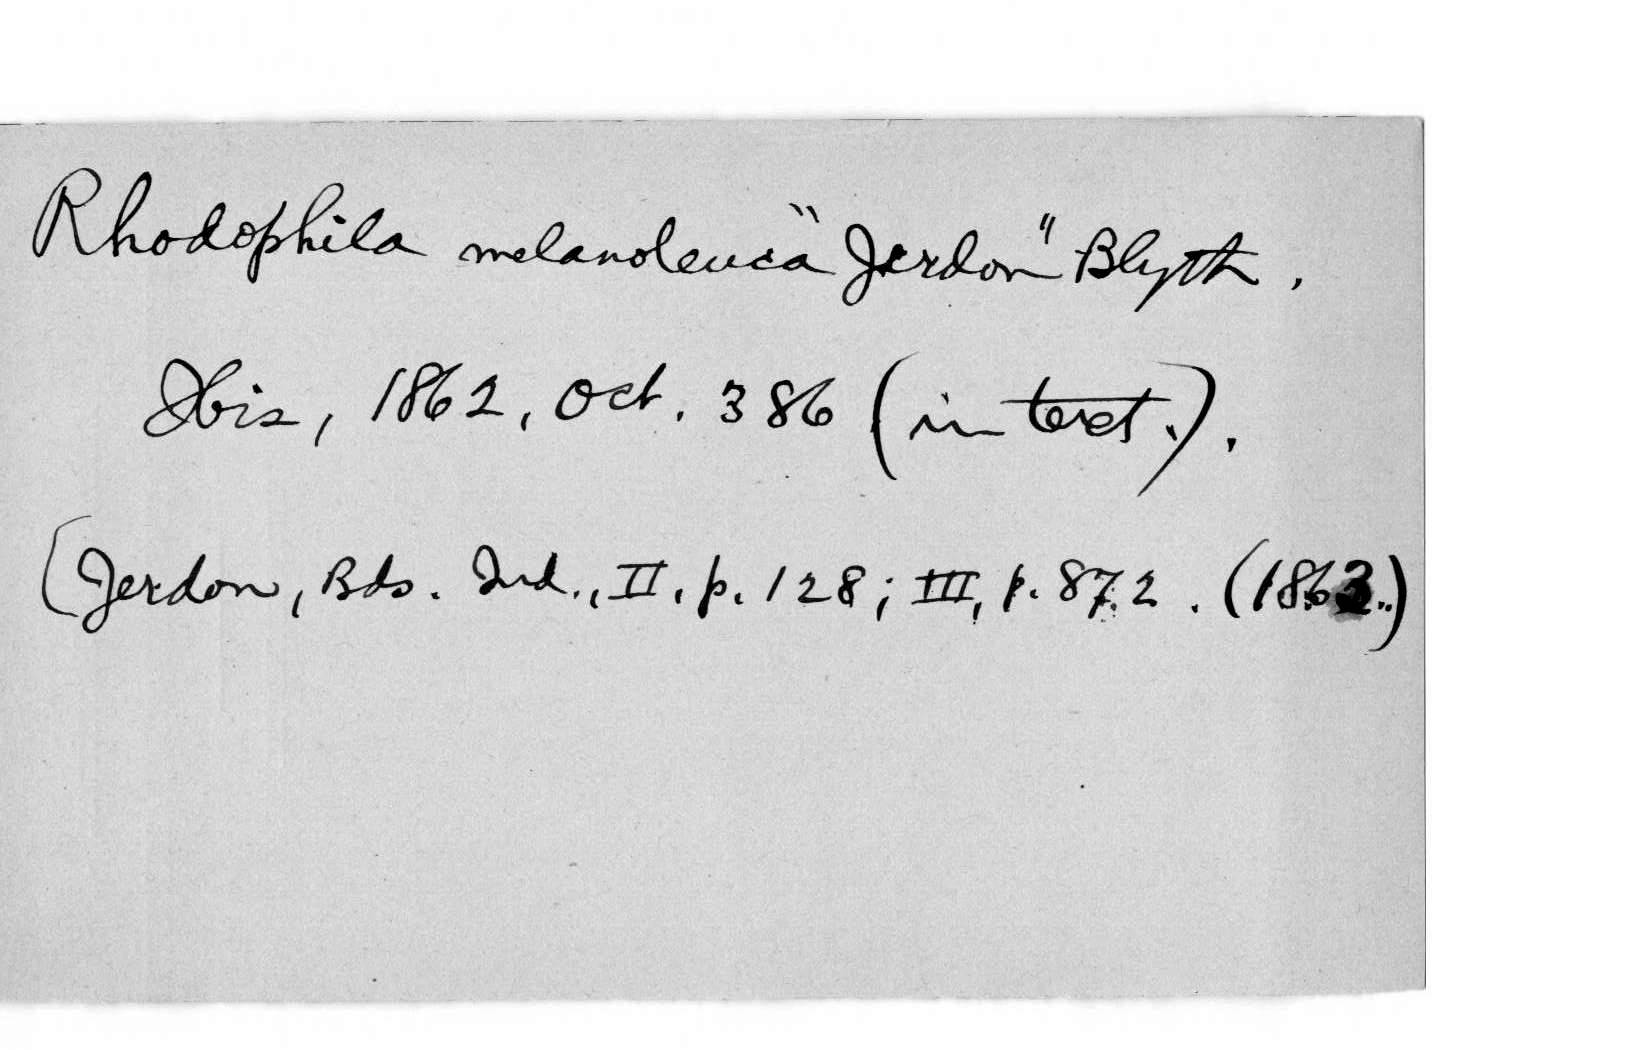 Rhodophila melanoleuca "Jerdon" Blyth,
Ibis, 1862, Oct. 386 (in text.).
(Jerdon, Bds. Ind., II, p. 128; III, p. 872. (1863.)